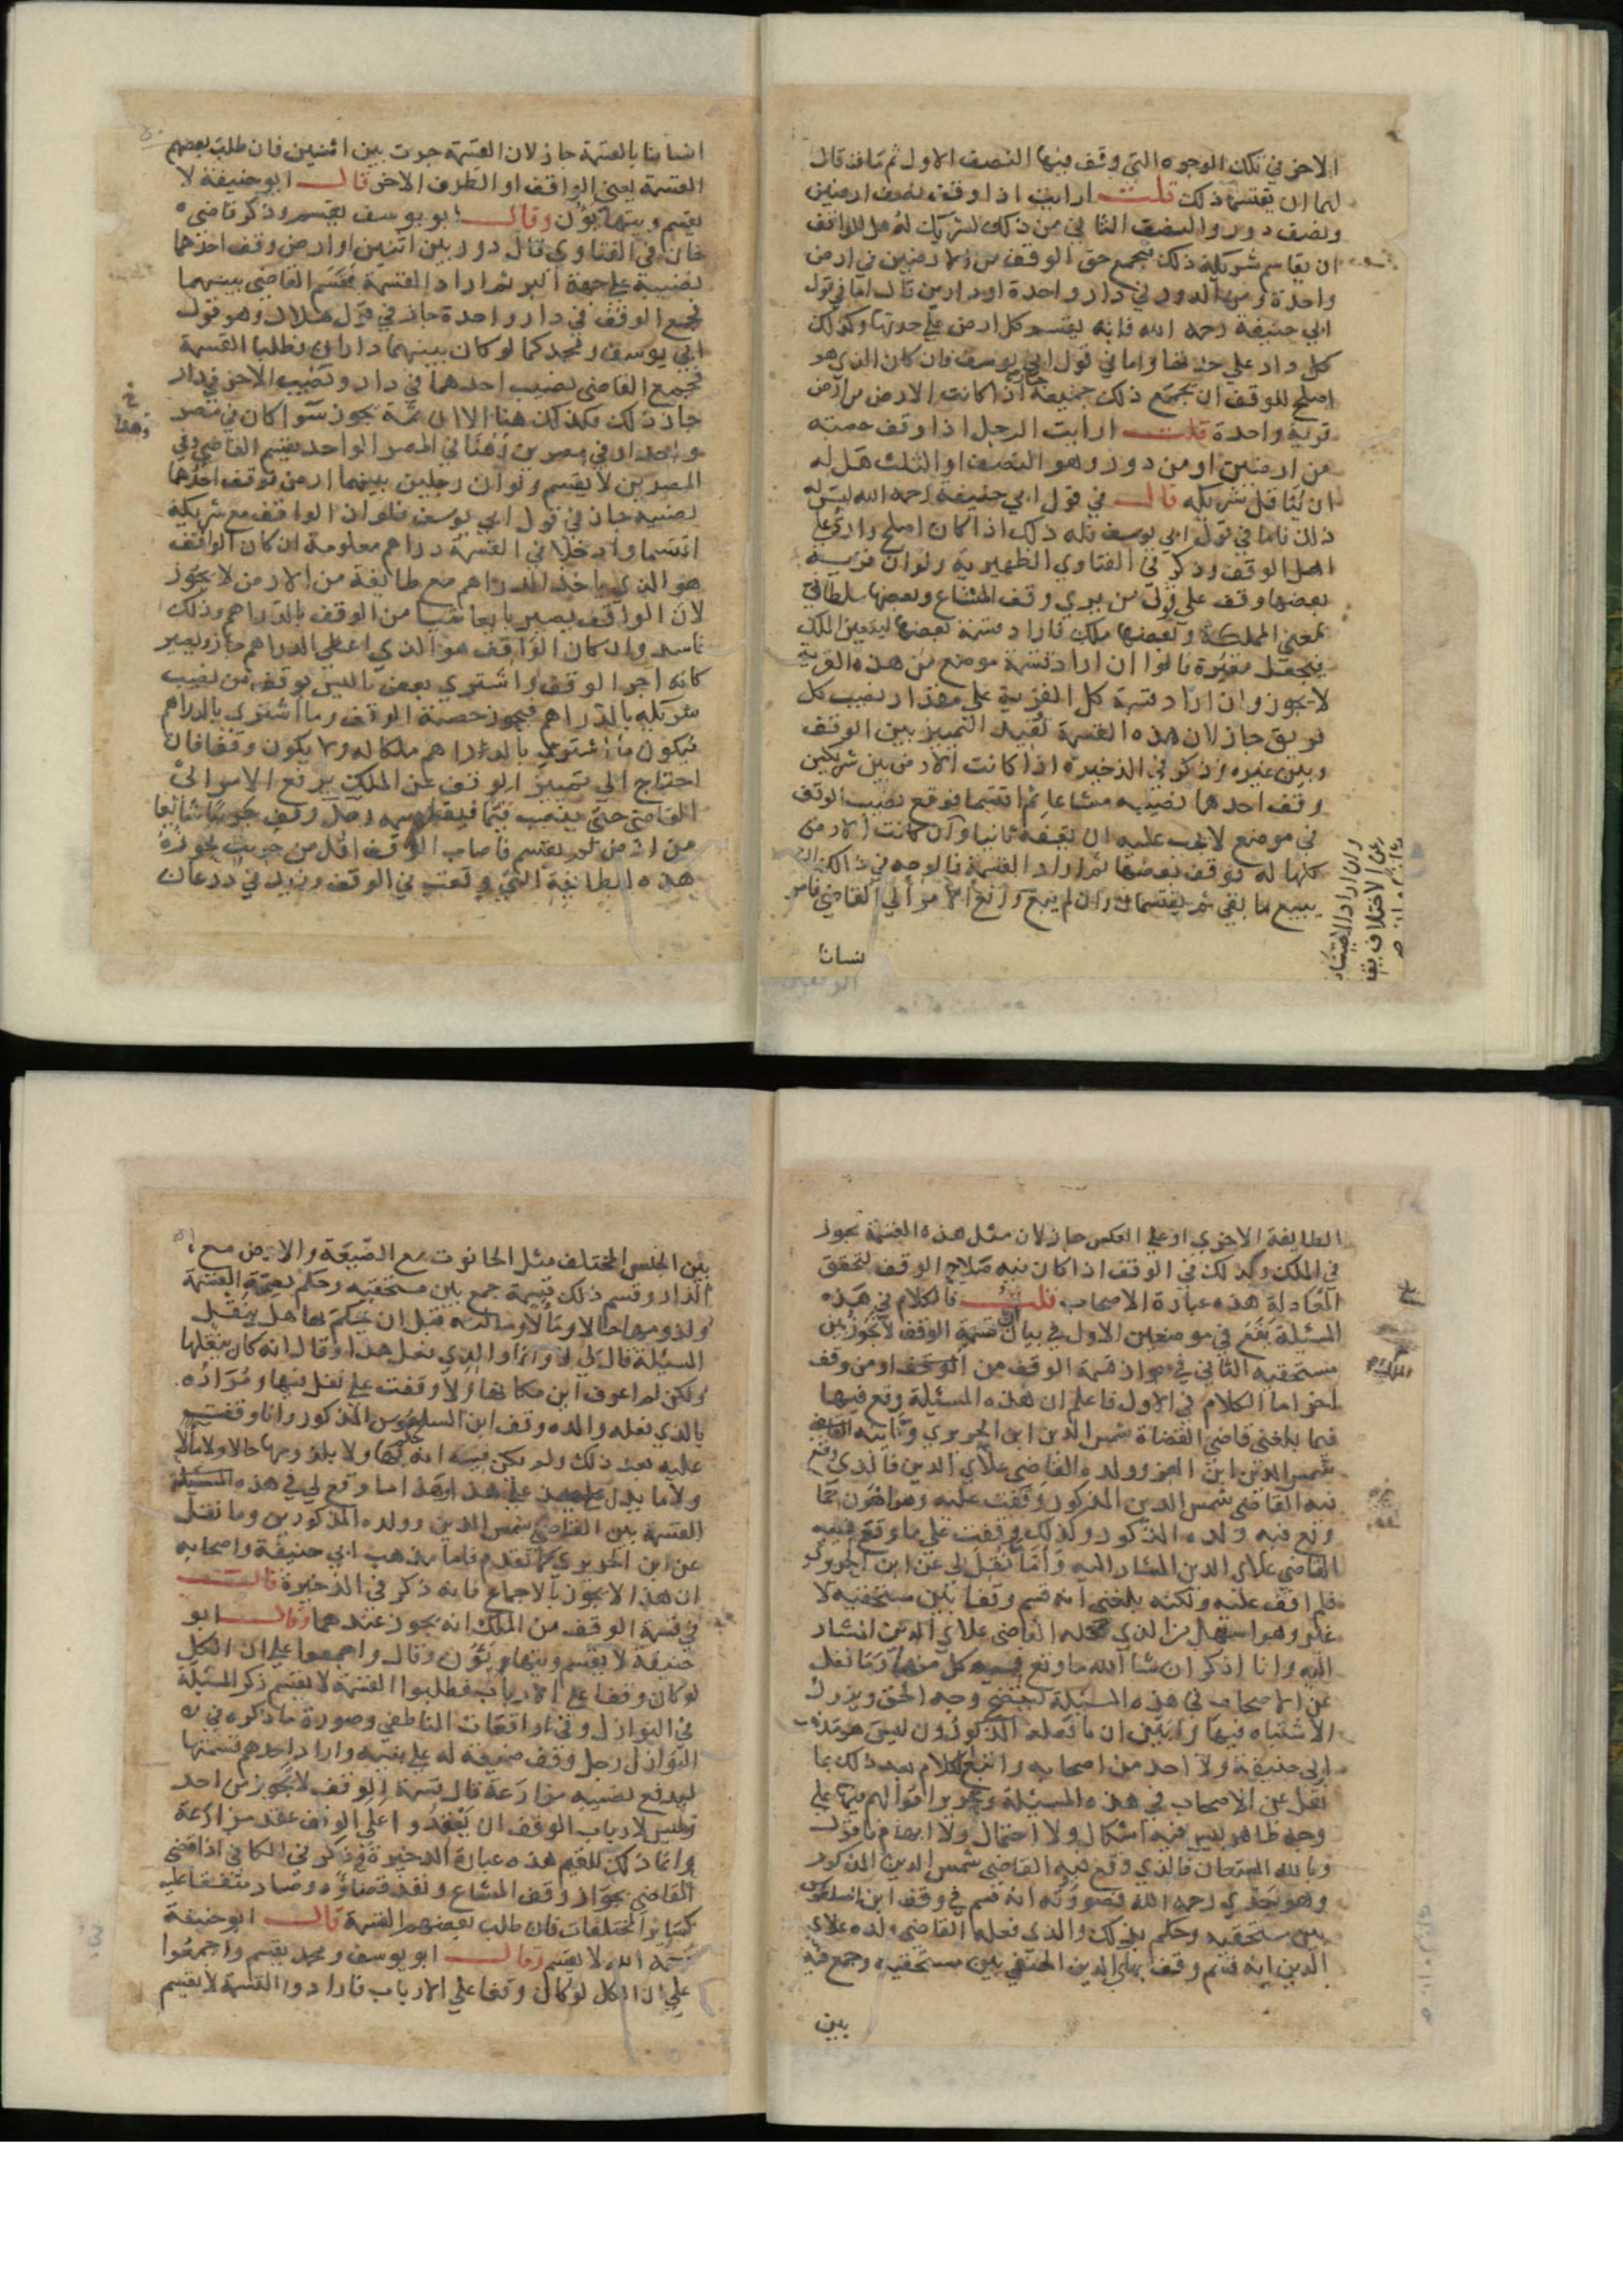 الاخر في تلك الوجوه التي وقف فيها النصف الاول ثم مات قال
لهما ان يقتسما ذلك قلت ارايت اذا وقف نصف ارضين
ونصف دور والنصف الثاني من ذلك لشريك له هل للواقف
ان يقاسم شريكه ذلك فيجمع حق الوقف من الارضين في ارض
واحدة ومن الدور في دار واحدة او دارين قال اما في قول
ابي حنيفة رحمه الله فانه يقسم كل ارض على حدتها وكذلك
كل دار على حدتها واما في قول ابي يوسف فان كان الذي هو
اصلح للوقف ان يجمع ذلك جميعه اذا كانت الارض من ارض
قرية واحدة قلت ارايت الرجل اذا وقف حصته
من ارضين او من دور وهو النصف او الثلث هل له
ان يناقل شريكه قال في قول ابي حنيفة رحمه الله ليس له
ذلك فاما في قول ابي يوسف فله ذلك اذا كان اصلح وارد على
اهل الوقف وذكر في الفتاوي الظهيرية ولو ان قرية
بعضها وقف على قول من يري وقف المشاع وبعضها سلطاني
بمعني المملكة وبعضها ملك فاراد قسمة بعضها ليتعين الملك
فيجعل مقبرة قالوا ان اراد قسمة موضع من هذه القرية
لا يجوز وان اراد قسمة كل القرية على مقدار نصيب كل
فريق جاز لان هذه القسمة تفيد التمييز بين الوقف
وبين غيره وذكر في الذخيرة اذا كانت الارض بين شريكين
وقف احدهما نصيبه مشاعا ثم اقتسما فوقع نصيب الوقف
في موضع لا يجب عليه ان يقفه ثانيا وان كانت الارض
كلها له فوقف بعضها ثم اراد القسمة فالوجه في ذلك ان
يبيع ما بقي ثم يقتسمان وان لم يبع ورفع الامر الى القاضي فامر
نسانا
وان اراد الاجتناب
عن الاختلاف يقف
انسانا بالقسمة جاز لان القسمة جرت بين اثنين فان طلب بعضهم
القسمة يعني الواقف او الطرف الاخر قال ابو حنيفة لا
يقسم ويتهايؤن وقال ابو يوسف يقسم وذكر قاضي
خان في الفتاوي قال دور بين اثنين او ارض وقف احدهما
نصيبه على جهة البر ثم اراد القسمة فقسم القاضي بينهما
فجمع الوقف في دار واحدة جاز في قول هلال وهو قول
ابي يوسف ومحمد كما لو كان بينهما داران فطلبا القسمة
فجمع القاضي نصيب احدهما في دار ونصيب الاخر في دار
جاز ذلك فكذلك هنا الا ان ثمة يجوز سوا كان في مصر
واحد او في مصرين وهنا في المصر الواحد يقسم القاضي وفي
المصرين لا يقسم ولو ان رجلين بينهما ارض فوقف احدهما
نصيبه جاز في قول ابي يوسف فلو ان الواقف مع شريكه
اقتسما وادخلا في القسمة دراهم معلومة ان كان الواقف
هو الذي ياخذ الدراهم مع طايفة من الارض لا يجوز
لان الواقف يصير بايعا شيا من الوقف بالدراهم وذلك
فاسد وان كان الواقف هو الذي اعطي الدراهم جاز ويصير
كانه اجر الوقف واشتري بعض ما ليس بوقف من نصيب
شريكه بالدراهم فيجوز حصة الوقف وما اشتري بالدراهم
فيكون ما اشتري بالدراهم ملكا له ولا يكون وقفا فان
احتاج الى تمييز الوقف عن الملك يرفع الامر الى
القاضي حتى ينصب قيما فيقاسمه رجل وقف جريبا شايعا
من ارض ثم يقتسم فاصاب الوقف اقل من جريب بجودة
هذه الطايفة التي وقعت في الوقف وزيد في ذرعان
الطايفة الاخري او على العكس جاز لان مثل هذه القسمة تجوز
في الملك وكذلك في الوقف اذا كان فيه صلاح الوقف لتحقق
المعادلة هذه عبارة الاصحاب قلت فالكلام في هذه
المسئلة يقع في موضعين الاول في بيان قسمة الوقف لا يجوز بين
مستحقيه الثاني في جواز قسمة الوقف من الوقف او من وقف
اخر اما الكلام في الاول فاعلم ان هذه المسئلة وقع فيها
فيما بلغني قاضي القضاة شمس الدين ابن الحريري ونايبه القاضي
شمس الدين ابن العز وولده القاضي علاي الدين فالذي وقع
فيه القاضي شمس الدين المذكور وقفت عليه وهو اهون مما
وقع فيه ولده المذكور وكذلك وقفت على ما وقع فيه
القاضي علاي الدين المشار اليه واما نقل لي عن ابن الحريري
فلم اقف عليه ولكنه بلغني انه قسم وقفا بين مستحقيه لا
غير وهو اسهل من الذي عمله القاضي علاي الدين المشار
اليه وانا اذكر ان شا الله ما وقع فيه كل منهما وما نقل
عن الاصحاب في هذه المسئلة ليتضح وجه الحق ويزول
الاشتباه فيها وابين ان ما فعله المذكورون ليس هو مذهب
ابي حنيفة ولا احد من اصحابه واتبع الكلام بعد ذلك بما
نقل عن الاصحاب في هذه المسئلة وتحرير اقوالهم فيها على
وجه ظاهر ليس فيه اشكال ولا احتمال ولا ابهام فاقول
وبالله المستعان فالذي وقع فيه القاضي شمس الدين المذكور
وهو نجدي رحمه الله فصورته انه قسم في وقف ابن السلعوس
بين مستحقيه وحكم بذلك والذي فعله القاضي ولده علاي
الدين انه قسم وقف بهاي الدين الحنفي بين مستحقيه وجمع فيه
بين
بين الجنس المختلف مثل الحانوت مع الضيعة والارض مع
الدار وقسم ذلك قسمة جمع بين مستحقيه وحكم بصحة القسمة
ولزومها حالا ومآلا وسالته قبل ان يحكم بها هل ينقل
المسئلة فقال لي لا وانما والدي فعل هذا وقال انه كان ينقلها
ولكن لم اعرف اين مكانها ولا وقفت على نقل فيها ومراده
بالذي فعله والده وقف ابن السلعوس المذكور وانا وقفت
عليه بعد ذلك ولم يكن فيه انه حكم بها ولا بلزومها حالا ولا مآلا
ولا ما يدل على هذا فهذا ما وقع لي في هذه المسئلة
القسمة بين القاضي شمس الدين وولده المذكورين وما نقل
عن ابن الحريري كما تقدم فاما مذهب ابي حنيفة واصحابه
ان هذا لا يجوز بالاجماع فانه ذكر في الذخيرة قال
في قسمة الوقف من الملك انه يجوز عندهما وقال ابو
حنيفة لا يقسم ويتهايؤن وقال واجمعوا على ان الكل
لو كان وقفا على الارباب فطلبوا القسمة لا يقسم ذكر المسئلة
في النوازل وفي واقعات الناطفي وصورة ما ذكره في
النوازل رجل وقف ضيعة له على بنيه واراد احدهم قسمتها
ليدفع نصيبه مزارعة قال قسمة الوقف لا تجوز من احد
وليس لارباب الوقف ان يعقدوا على الوقف عقد مزارعة
وانما ذلك للقيم هذه عبارة الذخيرة وذكر في الكافي اذا قضي
القاضي بجواز وقف المشاع ونفذ قضاؤه وصار متفقا عليه
كسائر المختلفات فان طلب بعضهم القسمة قال ابو حنيفة
رحمه الله لا يقسم وقال ابو يوسف ومحمد يقسم واجمعوا
على ان الكل لو كان وقفا على الارباب فارادوا القسمة لا يقسم